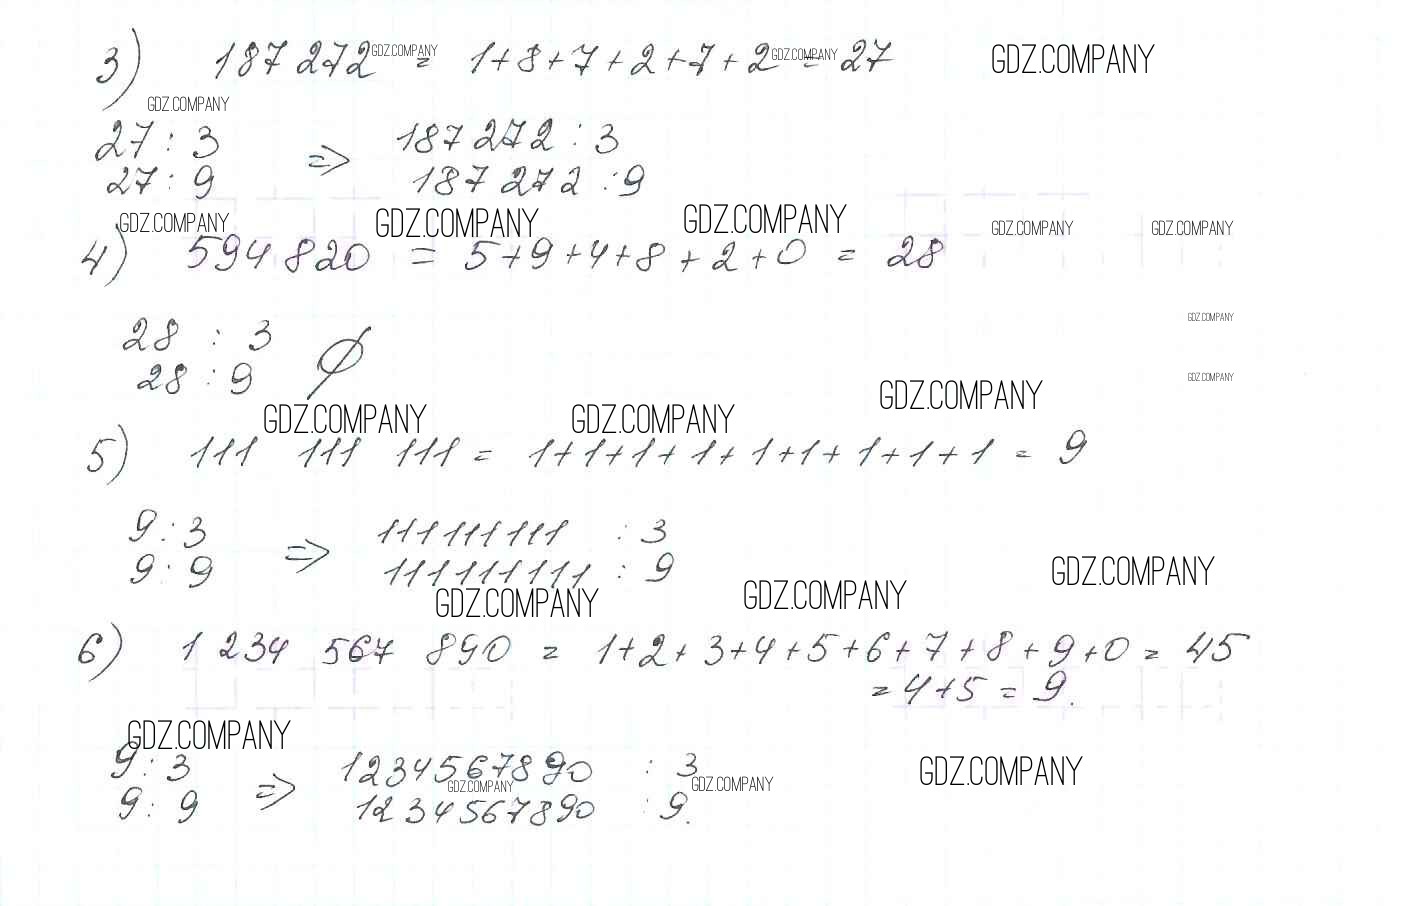 3) 187 272 = 1+8+7+2+7+2 = 27
GDZ.COMPANY GDZ.COMPANY GDZ.COMPANY
GDZ.COMPANY
27 : 3 ⇒ 187 272 : 3
27 : 9 187 272 : 9
GDZ.COMPANY GDZ.COMPANY GDZ.COMPANY GDZ.COMPANY GDZ.COMPANY
4) 594 820 = 5+9+4+8+2+0 = 28
GDZ.COMPANY
28 : 3 ∅
28 : 9
GDZ.COMPANY
GDZ.COMPANY GDZ.COMPANY GDZ.COMPANY
5) 111 111 111 = 1+1+1+1+1+1+1+1+1 = 9
9 : 3 ⇒ 111111111 : 3
9 : 9 111111111 : 9
GDZ.COMPANY GDZ.COMPANY GDZ.COMPANY
6) 1 234 567 890 = 1+2+3+4+5+6+7+8+9+0 = 45
= 4+5 = 9.
GDZ.COMPANY
9 : 3 ⇒ 1234567890 : 3
GDZ.COMPANY GDZ.COMPANY GDZ.COMPANY
9 : 9 1234567890 : 9.